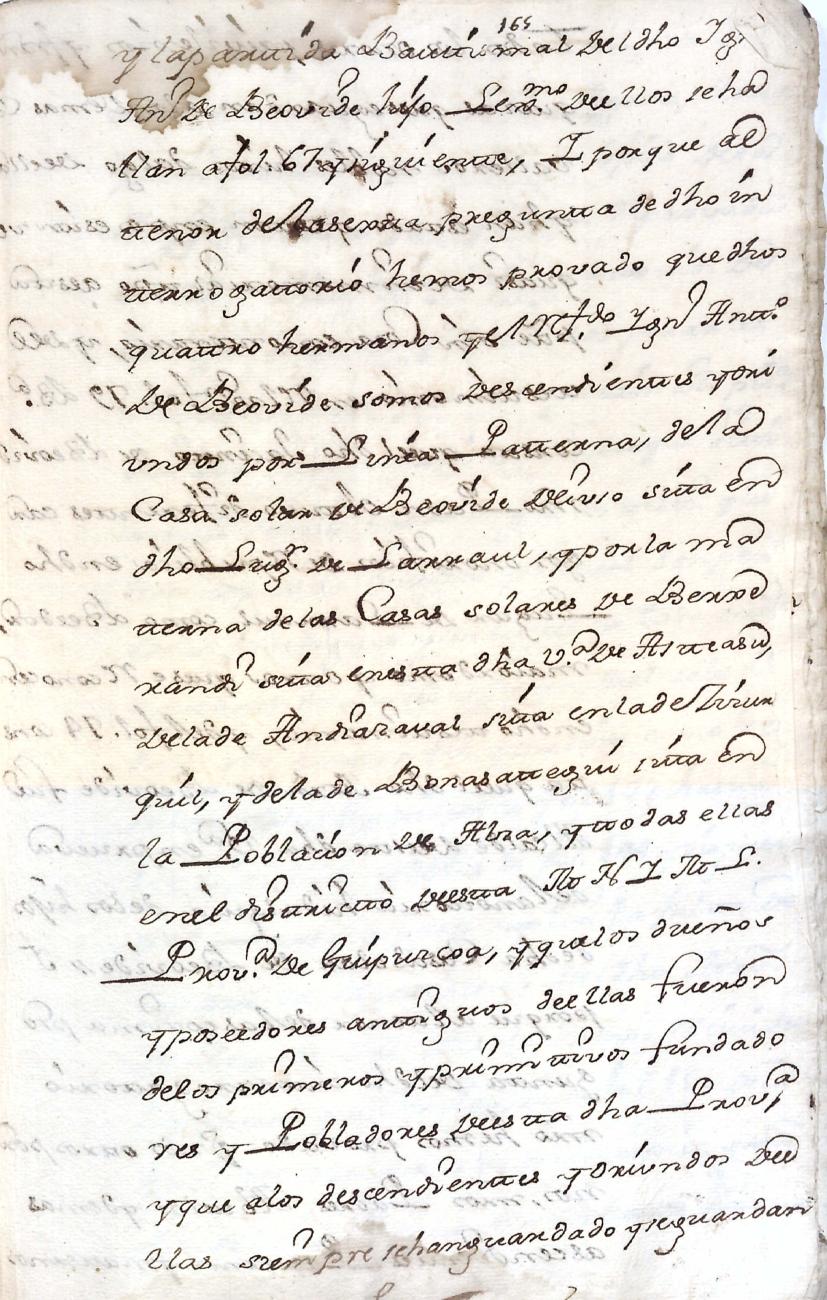 165
y la partida Bautismal del dho Ign.
Ant. de Beovide hijo Lex.mo de ellos se ha
llan a fol. 67 y siguiente, I porque al
tenor de la sexta pregunta de dho in
terrogattorio hemos provado que dhos
quattro hermanos y el Rf.do Ign Antt.o
de Beovide somos descendientes y ori
undos por Linea Patterna, de la
Casa solar de Beovide deuso sitta en
dho Lug.r de Larraul, y por la ma
tterna de las Casas solares de Berre
randi sitta en estta dha v.a de Asteasu,
de la de Andiazaval sitta en la de Zizur
quil, y de la de Bonasattegui sitta en
la Poblacion de Alza, y ttodas ellas
en el disttrictto de estta M N I M L.
Prov.a de Guipuzcoa, y que los dueños
y poseedores anttiguos de ellas fueron
de los primeros y primittivos fundado
res y Pobladores de estta dha Prov.a
y que a los descendienttes y oriundos de e
llas siempre se han guardado y se guardan